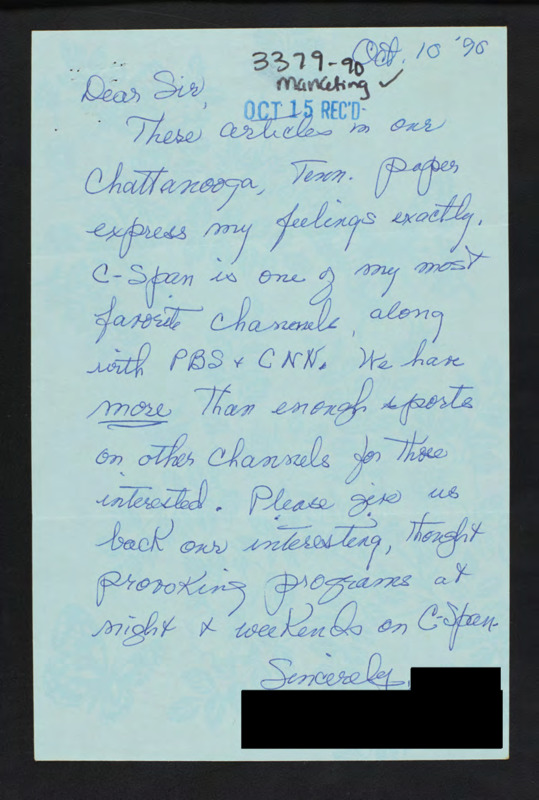 Oct. 10 '90
3379-90
Marketing ✓
Dear Sir,
OCT 15 REC'D
These articles in our
Chattanooga, Tenn. paper
express my feelings exactly.
C-Span is one of my most
favorite channels, along
with PBS & CNN. We have
more than enough sports
on other channels for those
interested. Please give us
back our interesting, thought
provoking programs at
night & weekends on C-Span.
Sincerely,